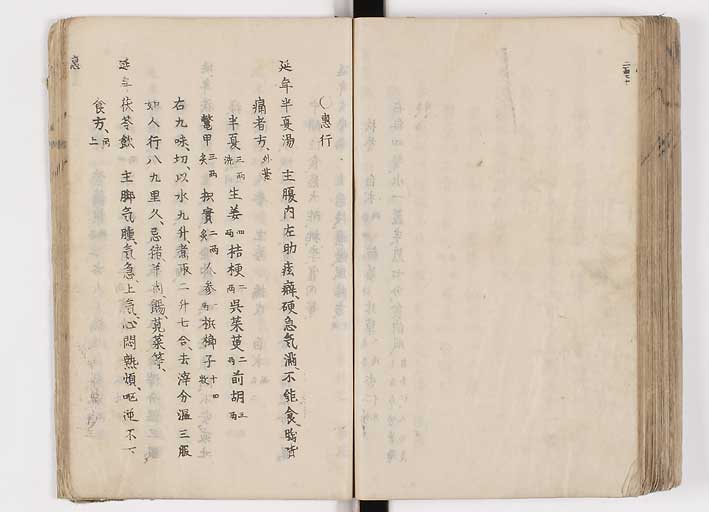 惠行
延年半夏湯 主腹内左肋痃癖硬急气滿不能食胸背
痛者方 外䑓
半夏 三兩洗 生姜 四兩 桔梗 二兩 吳茱萸 二兩 前胡 三兩
鱉甲 三兩炙 枳實 二兩炙 人参 一兩 梹榔子 十四枚
右九味切以水九升煮取二升七合去滓分温三服
如人行八九里久忌猪羊肉餳莧菜等
延年茯苓飲 主脚气腫气急上气心悶熱煩嘔逆不下
食方 同上
惠